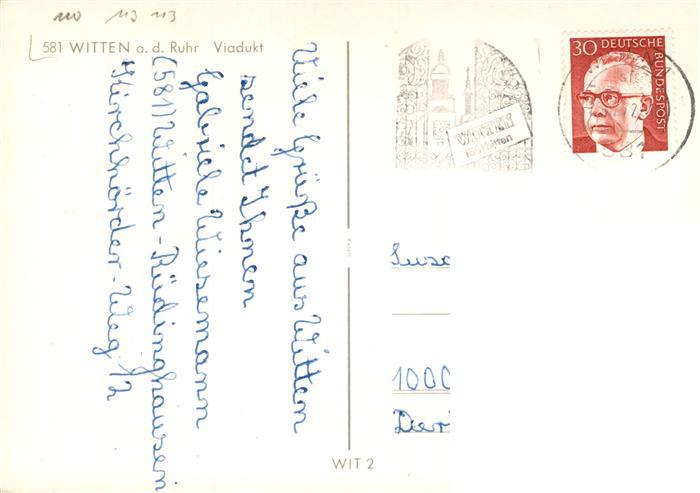 110 113 113
581 WITTEN a. d. Ruhr Viadukt
Viele Grüße aus Witten
sendet Ihnen
Gabriele Wiesemann
(581) Witten-Rüdinghausen
Kirchhörder-Weg 12
30 DEUTSCHE
BUNDESPOST
WITTEN
läßt bitten
581
1000
WIT 2